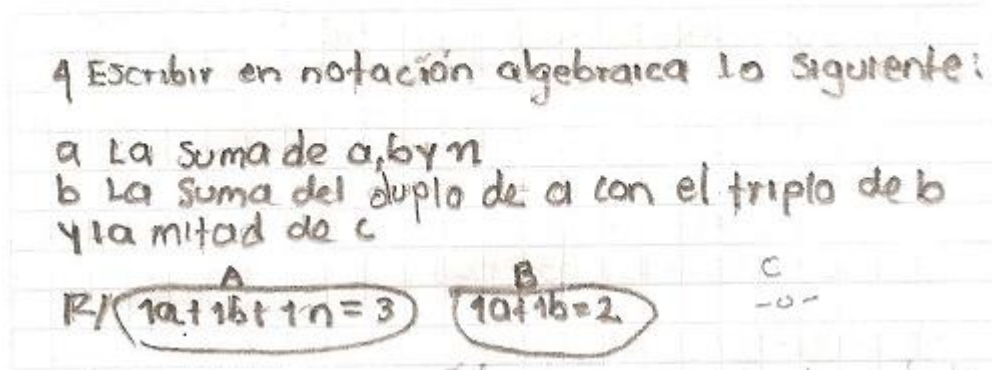 4 Escribir en notación algebraica lo siguiente:
a La suma de a, b y n
b La suma del duplo de a con el triplo de b
y la mitad de c
A B C
R/ 1a + 1b + 1n = 3 1a + 1b = 2 -0-